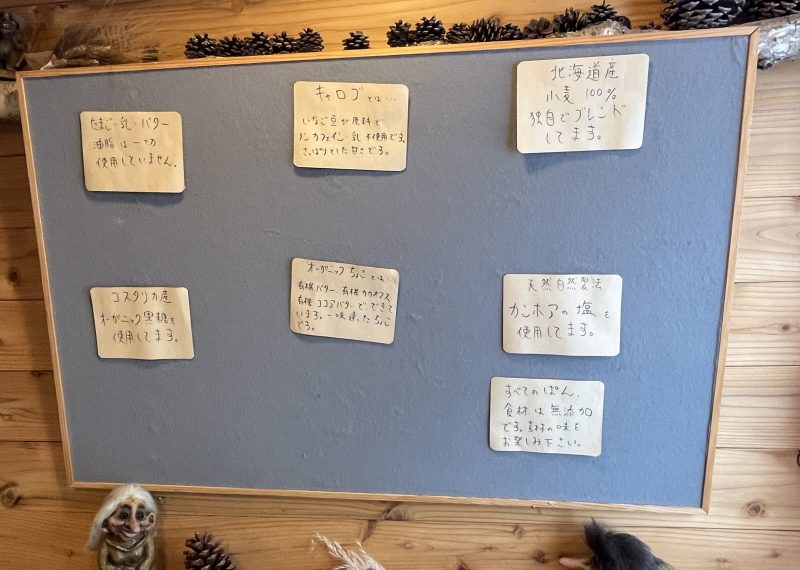 たまご・乳・バター
油脂は一切
使用していません。
キャロブとは…
いなご豆が原料で
ノンカフェイン・乳不使用です。
さっぱりとした甘さです。
北海道産
小麦100%
独自でブレンド
してます。
コスタリカ産
オーガニック黒糖を
使用してます。
オーガニックちょことは
有機バター、有機カカオマス
有機ココアバターでできて
います。一味違ったちょこ
です。
天然自然製法
カンホアの塩を
使用してます。
すべてのぱん、
食材は無添加
です。素材の味を
お楽しみ下さい。